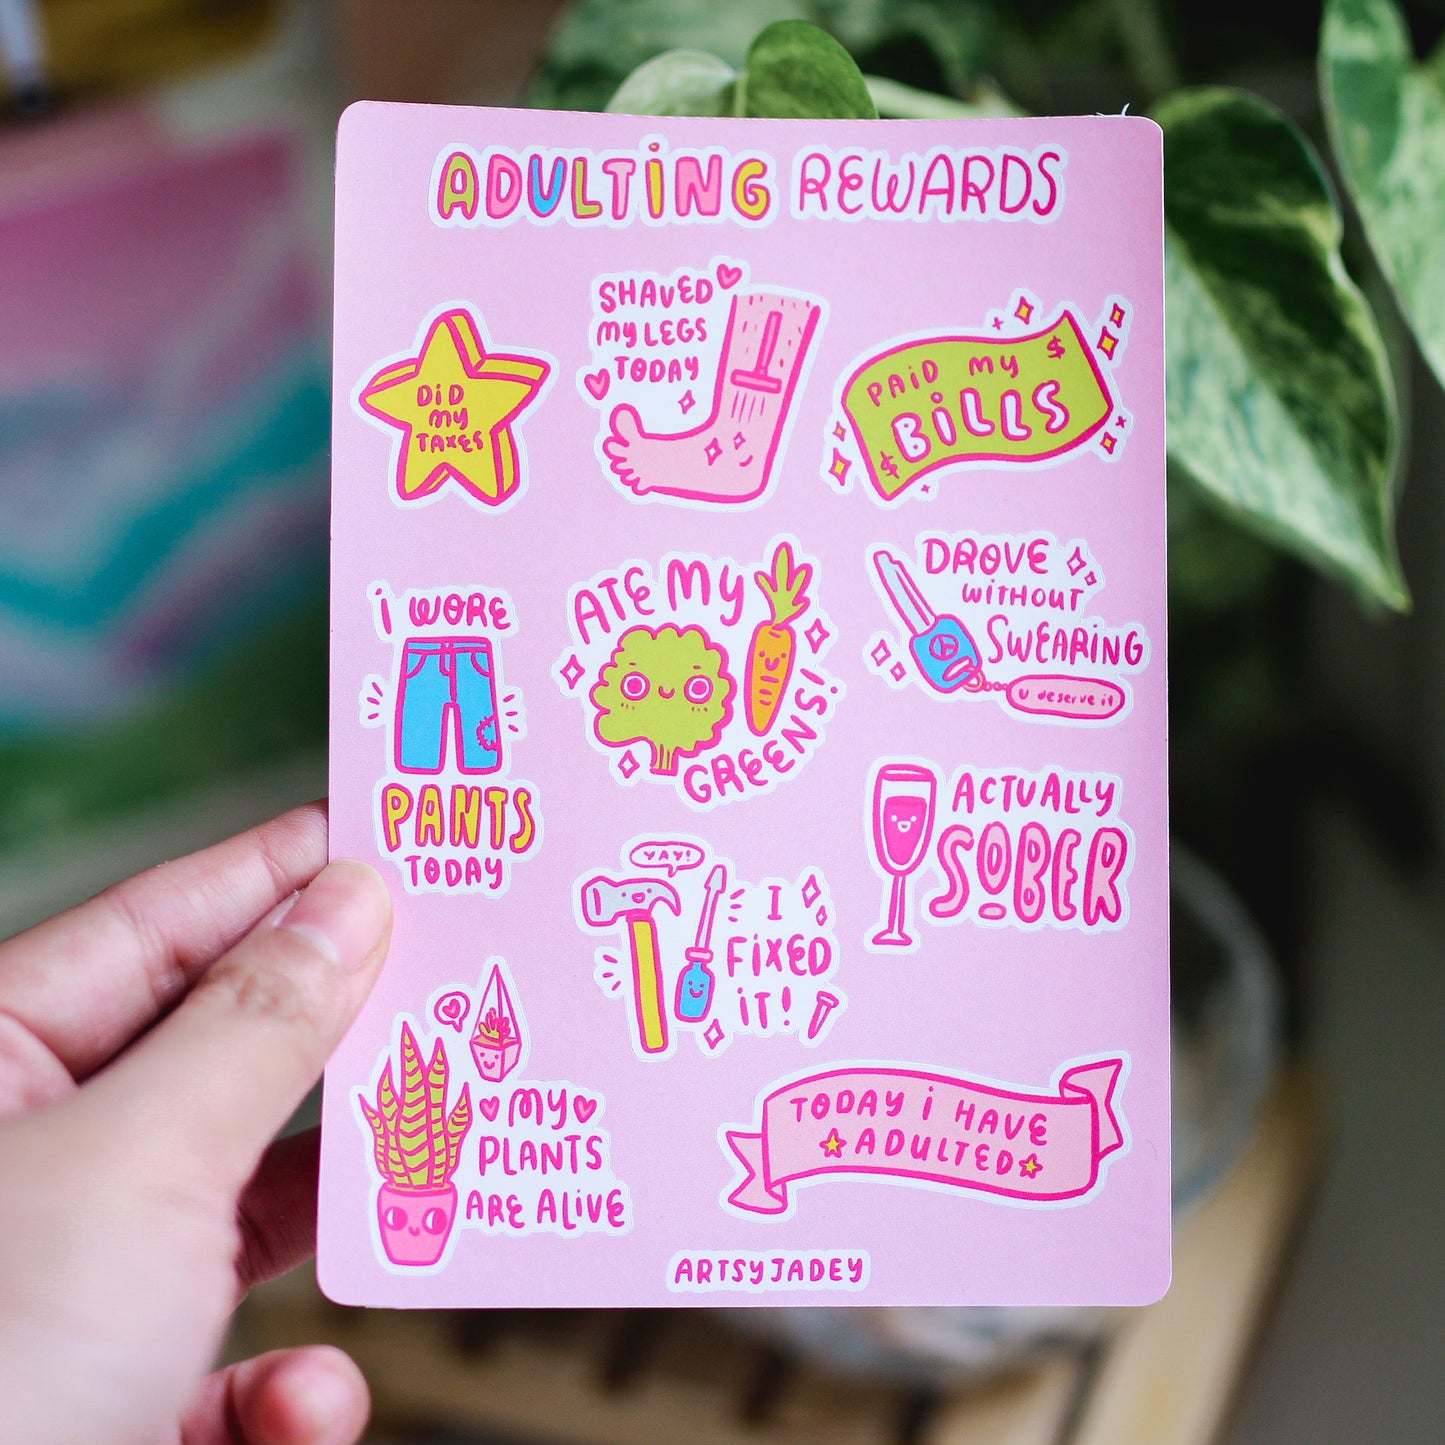 ADULTING REWARDS
DID
MY
TAXES
SHAVED
MY LEGS
TODAY
PAID MY $
$ BILLS
I WORE
PANTS
TODAY
ATE MY
GREENS!
DROVE
WITHOUT
SWEARING
U deserve it
ACTUALLY
SOBER
YAY!
I
FIXED
IT!
MY
PLANTS
ARE ALIVE
TODAY I HAVE
ADULTED
ARTSYJADEY